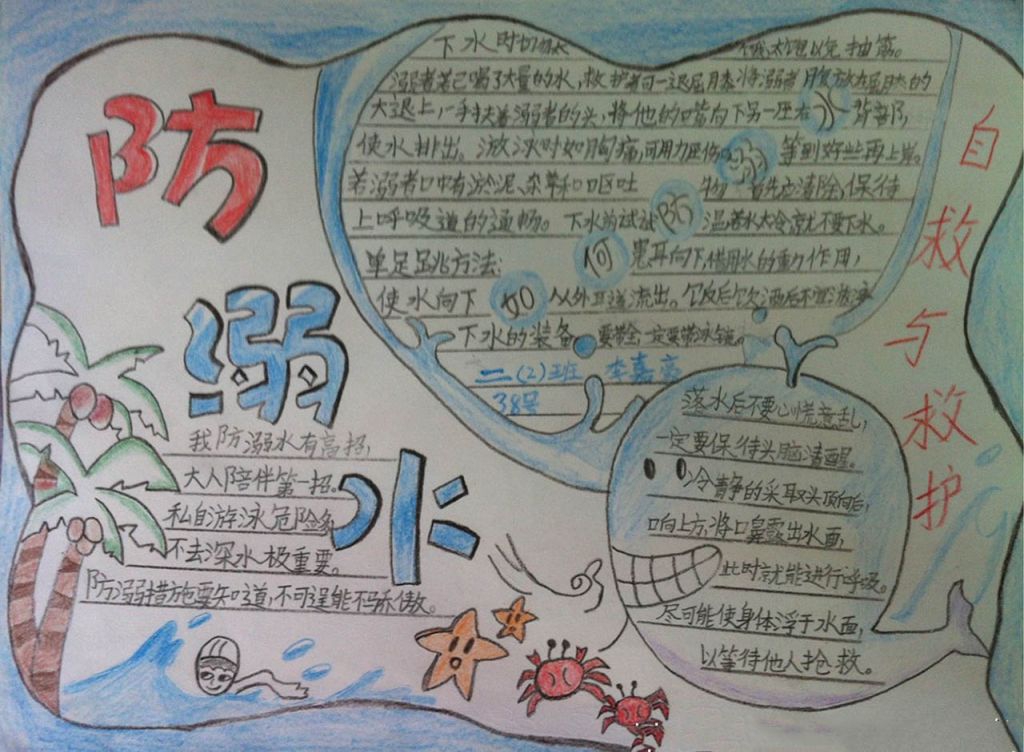 防
溺
水
下水时切勿太 饿、太饱以免抽筋。
溺者若已喝了大量的水,救护者可一退屈膝,将溺者腹放在屈膝的
大退上,一手扶着溺者的头,将他的嘴向下另一压右 背部,
使水排出。游泳时如胸痛,可用力压 等到好些再上岸。
若溺者口中有淤泥、杂草和口呕吐 物 首先应清除,保待
上呼吸道的通畅。下水前试试 温若水太冷就不要下水。
单足跳方法: 患耳向下,借用水的重力作用,
使水向下 从外耳道流出。饮反后饮酒后不宜游泳
下水的装备 要带全一定要带泳镜。
如何防溺水
二(2)班 李嘉亮
38号
自救与救护
我防溺水有高招,
大人陪伴第一招。
私自游泳危险多
不去深水极重要。
防溺措施要知道,不可逞能不骄傲。
落水后不要心慌意乱,
一定要保待头脑清醒。
冷青静的采取头顶向后,
口向上方,将口鼻露出水面,
此时就能进行呼吸。
尽可能使身体浮于水面,
以等待他人抢救。